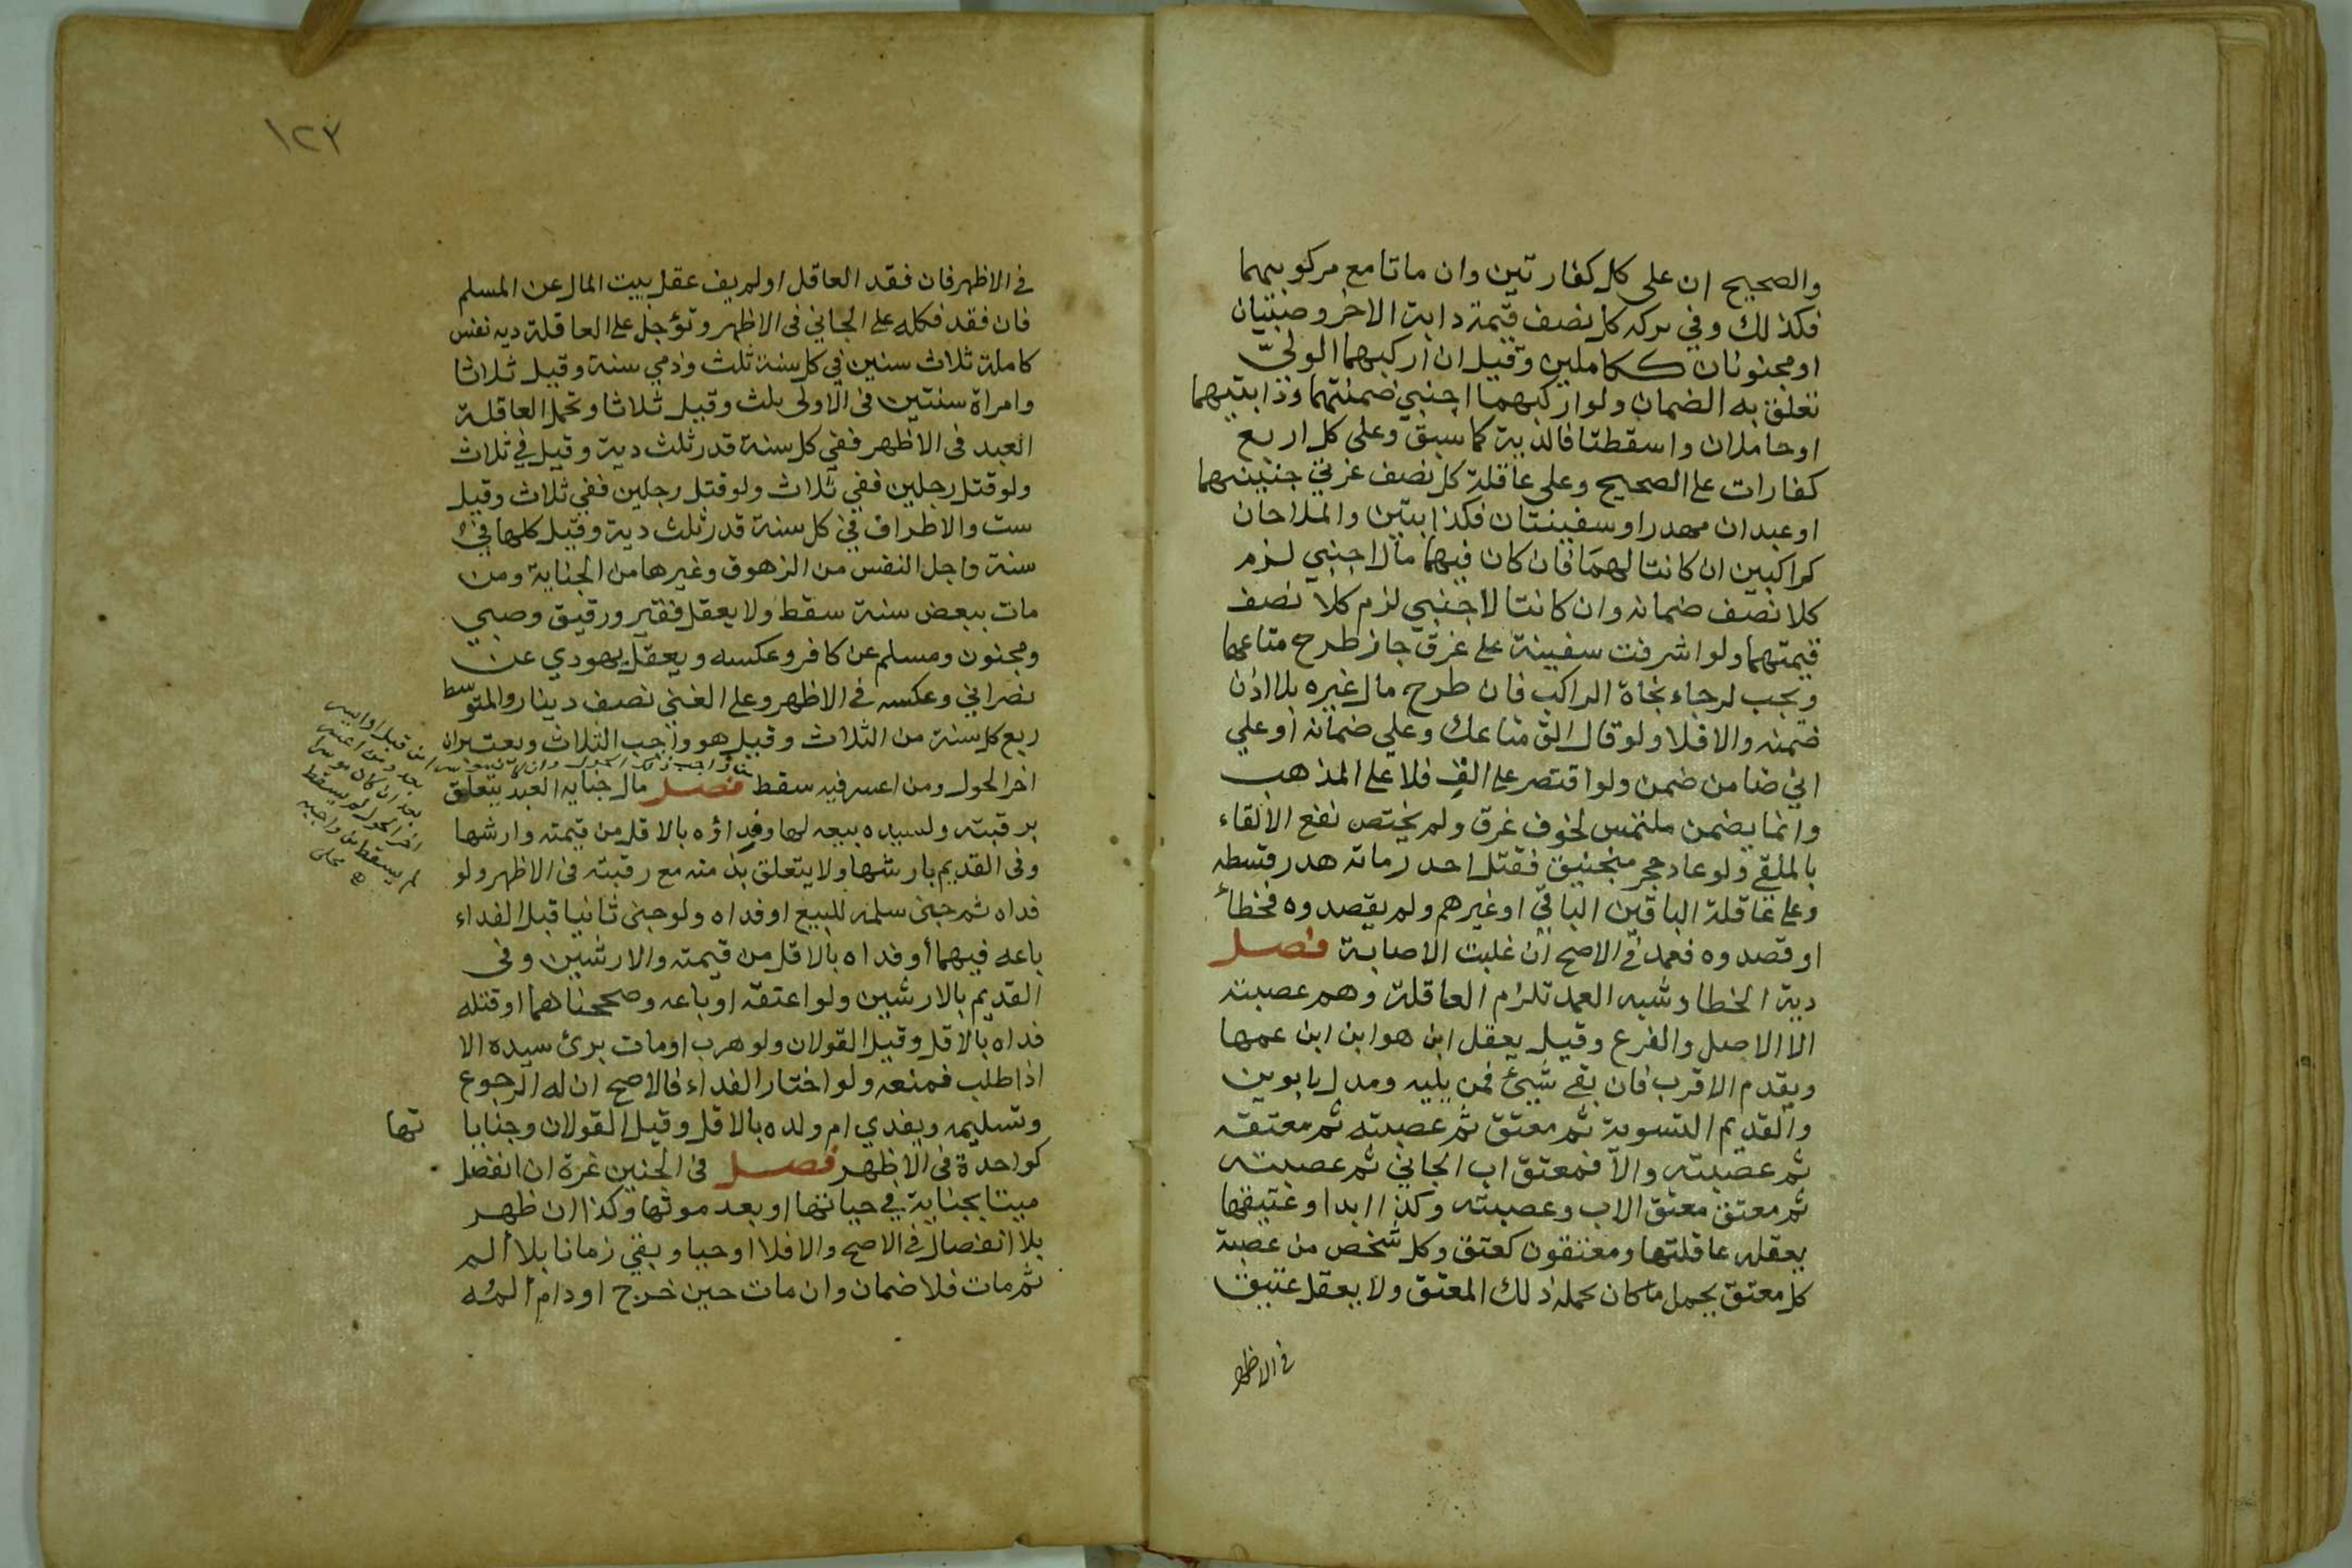 والصحيح ان على كل كفارتين وان ماتا مع مركوبيهما
فكذلك وفي تركه كل نصف قيمة دابة الاخر وصبيان
او مجنونان ككاملين وقيل ان اركبهما الوليّ
تعلق به الضمان ولو اركبهما اجنبي ضمنتهما ودابتيهما
او حاملان واسقطتا فالدية كما سبق وعلى كل اربع
كفارات على الصحيح وعلى عاقلة كل نصف غرتي جنينيهما
او عبدان مهدر او سفينتان فكدابتين والملاحان
كراكبين ان كانتا لهما فان كان فيهما مال اجنبي لزم
كلا نصف ضمانه وان كانتا لاجنبي لزم كلا نصف
قيمتهما ولو اشرفت سفينة على غرق جاز طرح متاعها
ويجب لرجاء نجاة الراكب فان طرح مال غيره بلا اذن
ضمنه والا فلا ولو قال الق متاعك وعلي ضمانه او علي
اني ضامن ضمن ولو اقتصر على الق فلا على المذهب
وانما يضمن ملتمس لخوف غرق ولم يختص نفع الالقاء
بالملقي ولو عاد حجر منجنيق فقتل احد رماته هدر قسطه
وعلى عاقلة الباقين الباقي او غيرهم ولم يقصدوه فخطأ
او قصدوه فعمد في الاصح ان غلبت الاصابة فصل
دية الخطا وشبه العمد تلزم العاقلة وهم عصبته
الا الاصل والفرع وقيل يعقل ابن هو ابن ابن عمها
ويقدم الاقرب فان بقي شيئ فمن يليه ومدل بابوين
والقديم التسوية ثم معتق ثم عصبته ثم معتقه
ثم عصبته والا فمعتق اب الجاني ثم عصبته
ثم معتق معتق الاب وعصبته وكذا ابدا وعتيقها
يعقله عاقلتها ومعتقون كمعتق وكل شخص من عصبة
كل معتق يحمل ما كان يحمله ذلك المعتق ولا يعقل عتيق
في الاظهر
١٢٣
في الاظهر فان فقد العاقل او لم يف عقل بيت المال عن المسلم
فان فقد فكله على الجاني في الاظهر وتؤجل على العاقلة دية نفس
كاملة ثلاث سنين في كل سنة ثلث وذمي سنة وقيل ثلاثا
وامراة سنتين في الاولى ثلث وقيل ثلاثا وتحمل العاقلة
العبد في الاظهر ففي كل سنة قدر ثلث دية وقيل في ثلاث
ولو قتل رجلين ففي ثلاث ولو قتل رجلين ففي ثلاث وقيل
ست والاطراف في كل سنة قدر ثلث دية وقيل كلها في
سنة واجل النفس من الزهوق وغيرها من الجناية ومن
مات ببعض سنة سقط ولا يعقل فقير ورقيق وصبي
ومجنون ومسلم عن كافر وعكسه ويعقل يهودي عن
نصراني وعكسه في الاظهر وعلى الغني نصف دينار والمتوسط
ربع كل سنة من الثلاث وقيل هو واجب الثلاث ويعتبران
اخر الحول ومن اعسر فيه سقط فصل مال جناية العبد يتعلق
برقبته ولسيده بيعه لها وفداؤه بالاقل من قيمته وارشها
وفي القديم بارشها ولا يتعلق بذمته مع رقبته في الاظهر ولو
فداه ثم جنى سلمه للبيع او فداه ولو جنى ثانيا قبل الفداء
باعه فيهما أو فداه بالاقل من قيمته والارشين وفي
القديم بالارشين ولو اعتقه او باعه وصححناهما او قتله
فداه بالاقل وقيل القولان ولو هرب او مات برئ سيده الا
اذا طلب فمنعه ولو اختار الفداء فالاصح ان له الرجوع
وتسليمه ويفدي ام ولده بالاقل وقيل القولان وجنايا تها
كواحدة في الاظهر فصل في الجنين غرة ان انفصل
ميتا بجناية في حياتها او بعد موتها وكذا ان ظهر
بلا انفصال في الاصح والا فلا او حيا وبقي زمانا بلا ألم
ثم مات فلا ضمان وان مات حين خرج او دام ألمه
بعد ان كان موسرا
اخر الحول لم يسقط
لم يسقط من واجبه
محلي